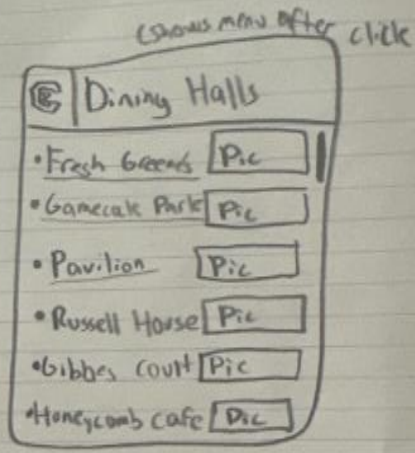 (shows menu after click
Dining Halls
• Fresh Greens Pic
• Gamecock Park Pic
• Pavilion Pic
• Russell House Pic
• Gibbes Court Pic
• Honeycomb cafe Pic